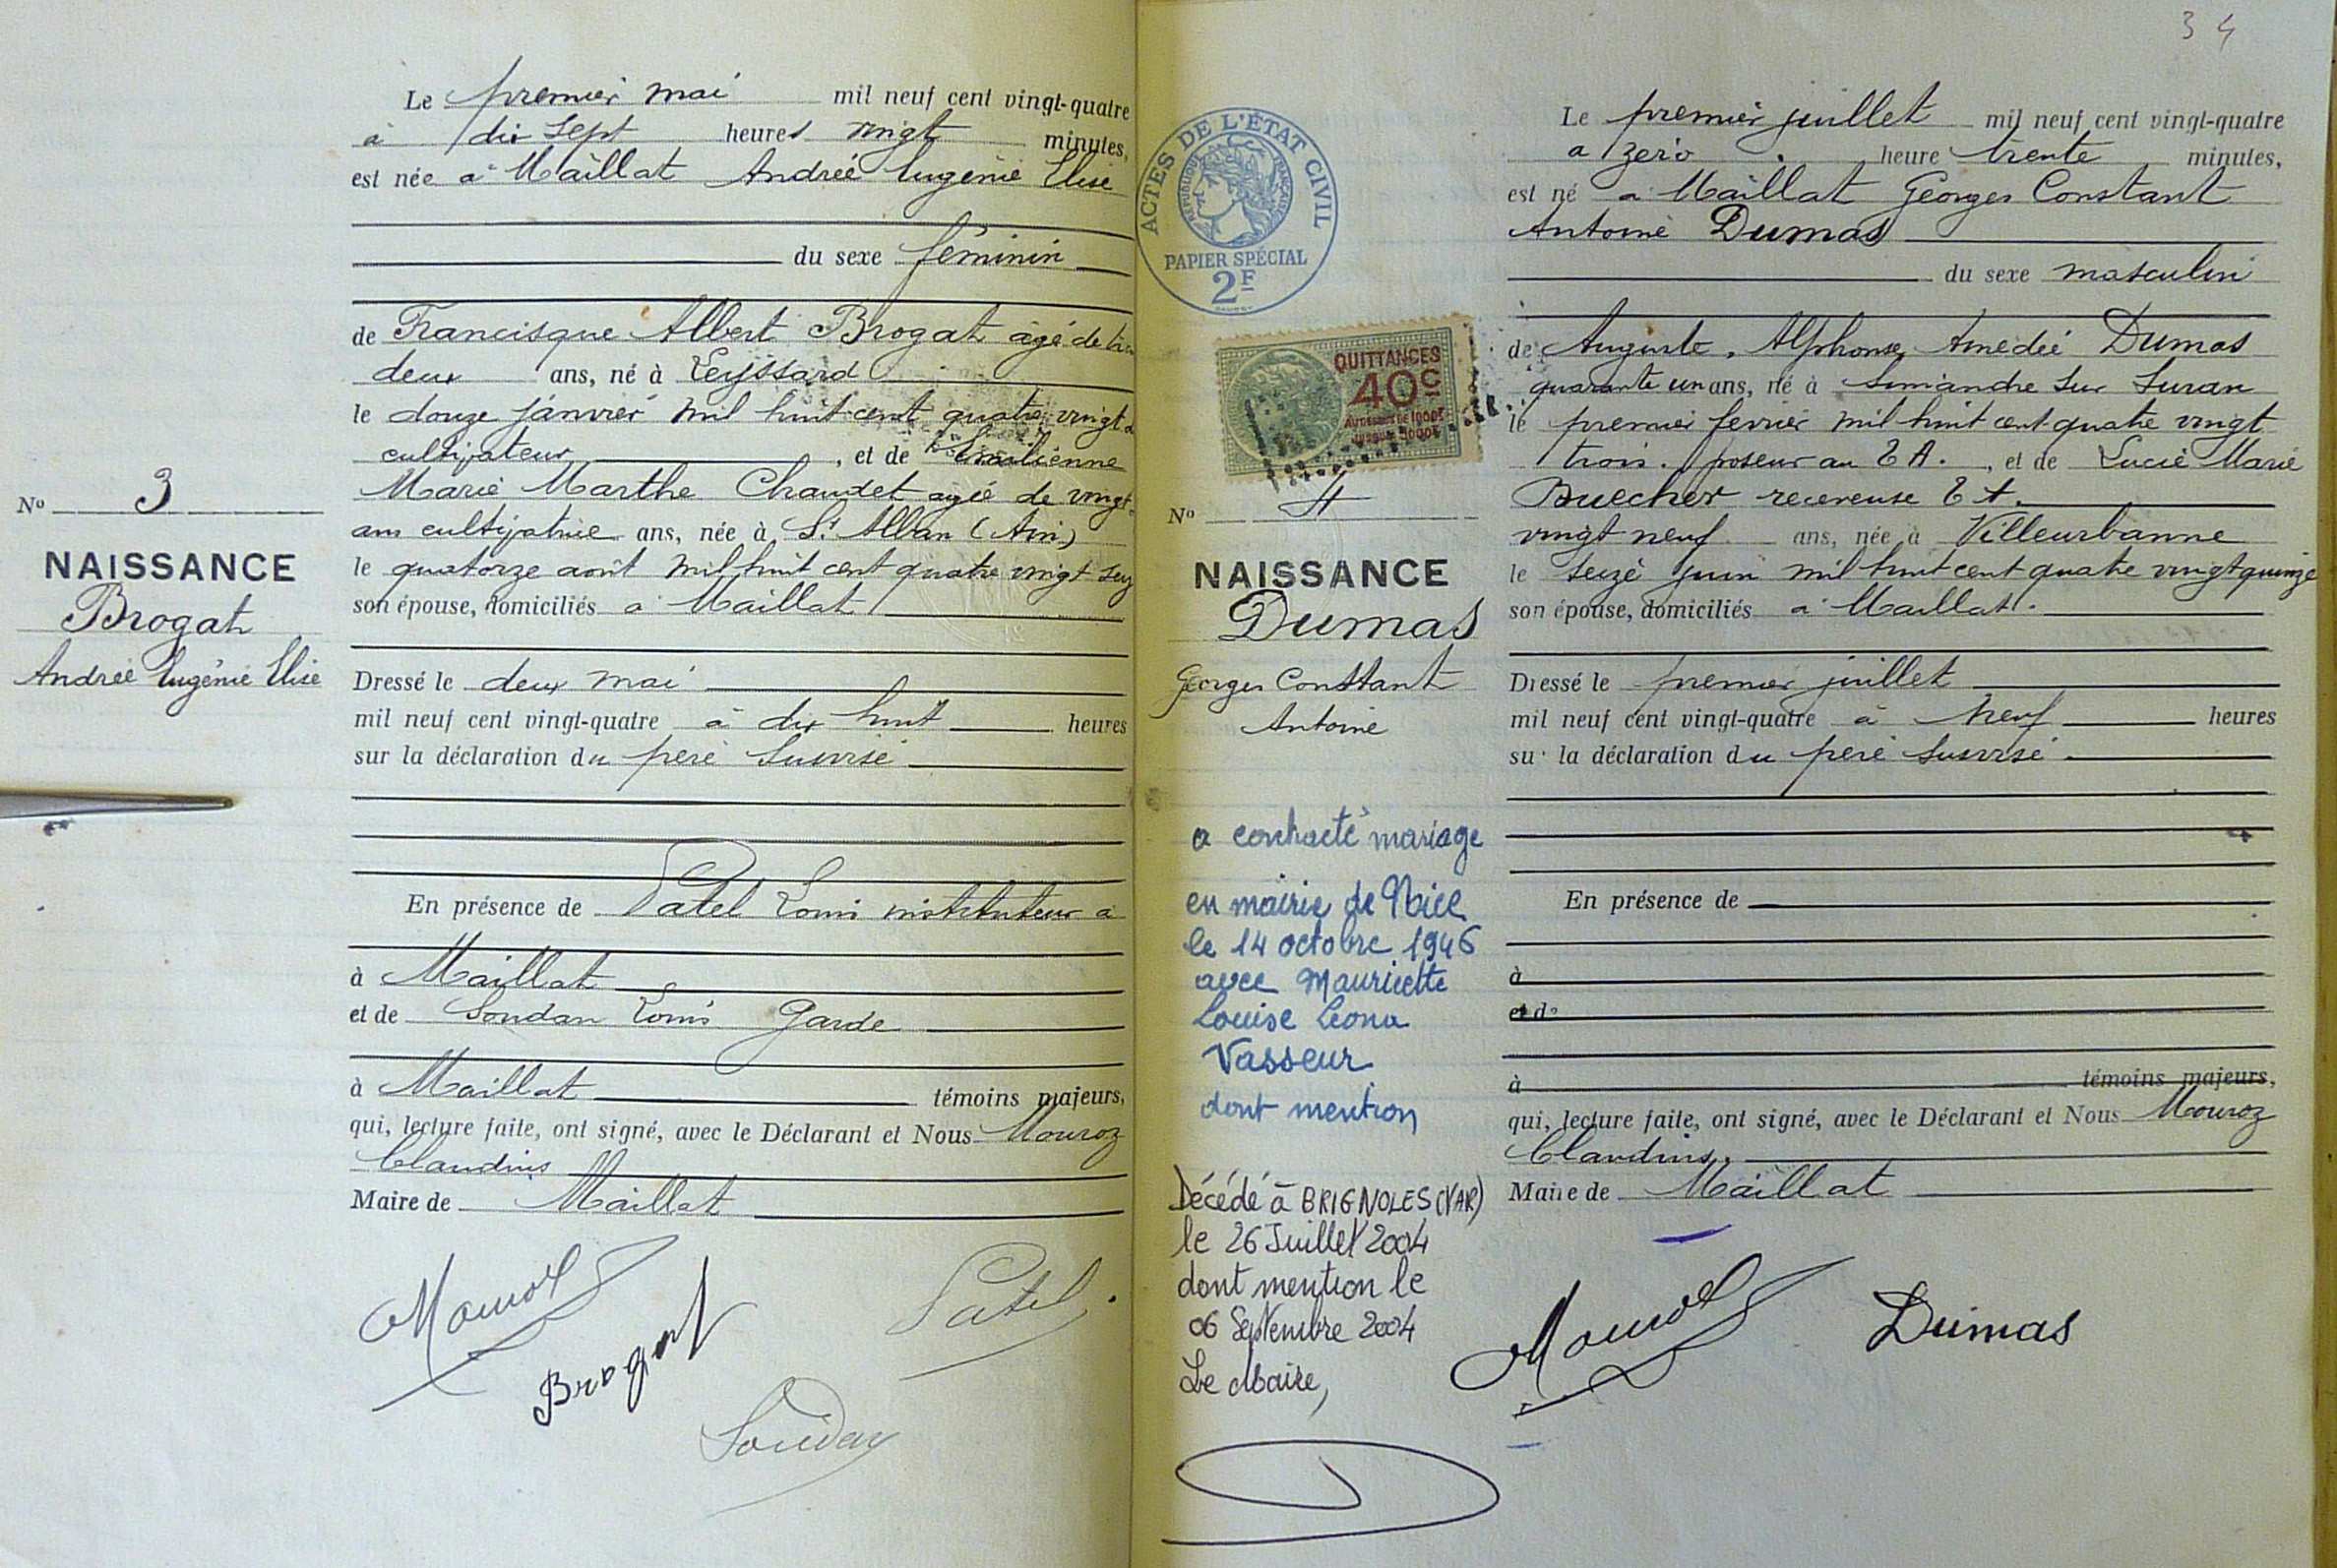 Le premier mai mil neuf cent vingt-quatre
à dix sept heures vingt minutes,
est née à Maillat Andrée Eugénie Elise
du sexe féminin
de Francisque Albert Brogat âgé de
deux ans, né à Leyssard
le douze janvier mil huit cent quatre vingt
cultivateur, et de Emilienne
Marie Marthe Chaudet agée de vingt
ans cultivatrice ans, née à St Alban (Ain)
le quatorze août mil huit cent quatre vingt seize
son épouse, domiciliés à Maillat
No 3
NAISSANCE
Brogat
Andrée Eugénie Elise
Dressé le deux mai
mil neuf cent vingt-quatre à dix huit heures
sur la déclaration du père susvisé
En présence de Patel Louis instituteur à
à Maillat
et de Soudan Louis Garde
à Maillat témoins majeurs,
qui, lecture faite, ont signé, avec le Déclarant et Nous Mouroz
Claudius
Maire de Maillat
Mouroz
Brogat
Patel
Soudan
34
ACTES DE L'ÉTAT CIVIL
RÉPUBLIQUE FRANÇAISE
PAPIER SPÉCIAL
2F
QUITTANCES
40c
No 4
NAISSANCE
Dumas
Georges Constant
Antoine
a contracté mariage
en mairie de Nice
le 14 octobre 1946
avec Mauricette
Louise Léona
Vasseur
dont mention
Décédé à BRIGNOLES (VAR)
le 26 Juillet 2004
dont mention le
06 Septembre 2004
Le Maire,
Le premier juillet mil neuf cent vingt-quatre
a zéro heure trente minutes,
est né à Maillat Georges Constant
Antoine Dumas
du sexe masculin
de Auguste, Alphonse, Amédée Dumas
quarante un ans, né à Simandre sur Suran
le premier fevrier mil huit cent quatre vingt
trois. poseur au T A., et de Lucie Marie
Buecher receveuse T A.
vingt neuf ans, née à Villeurbanne
le seize juin mil huit cent quatre vingt quinze
son épouse, domiciliés à Maillat.
Dressé le premier juillet
mil neuf cent vingt-quatre à neuf heures
sur la déclaration du père susvisé.
En présence de
à
et de
à témoins majeurs,
qui, lecture faite, ont signé, avec le Déclarant et Nous Mouroz
Claudius.
Maire de Maillat
Mouroz
Dumas